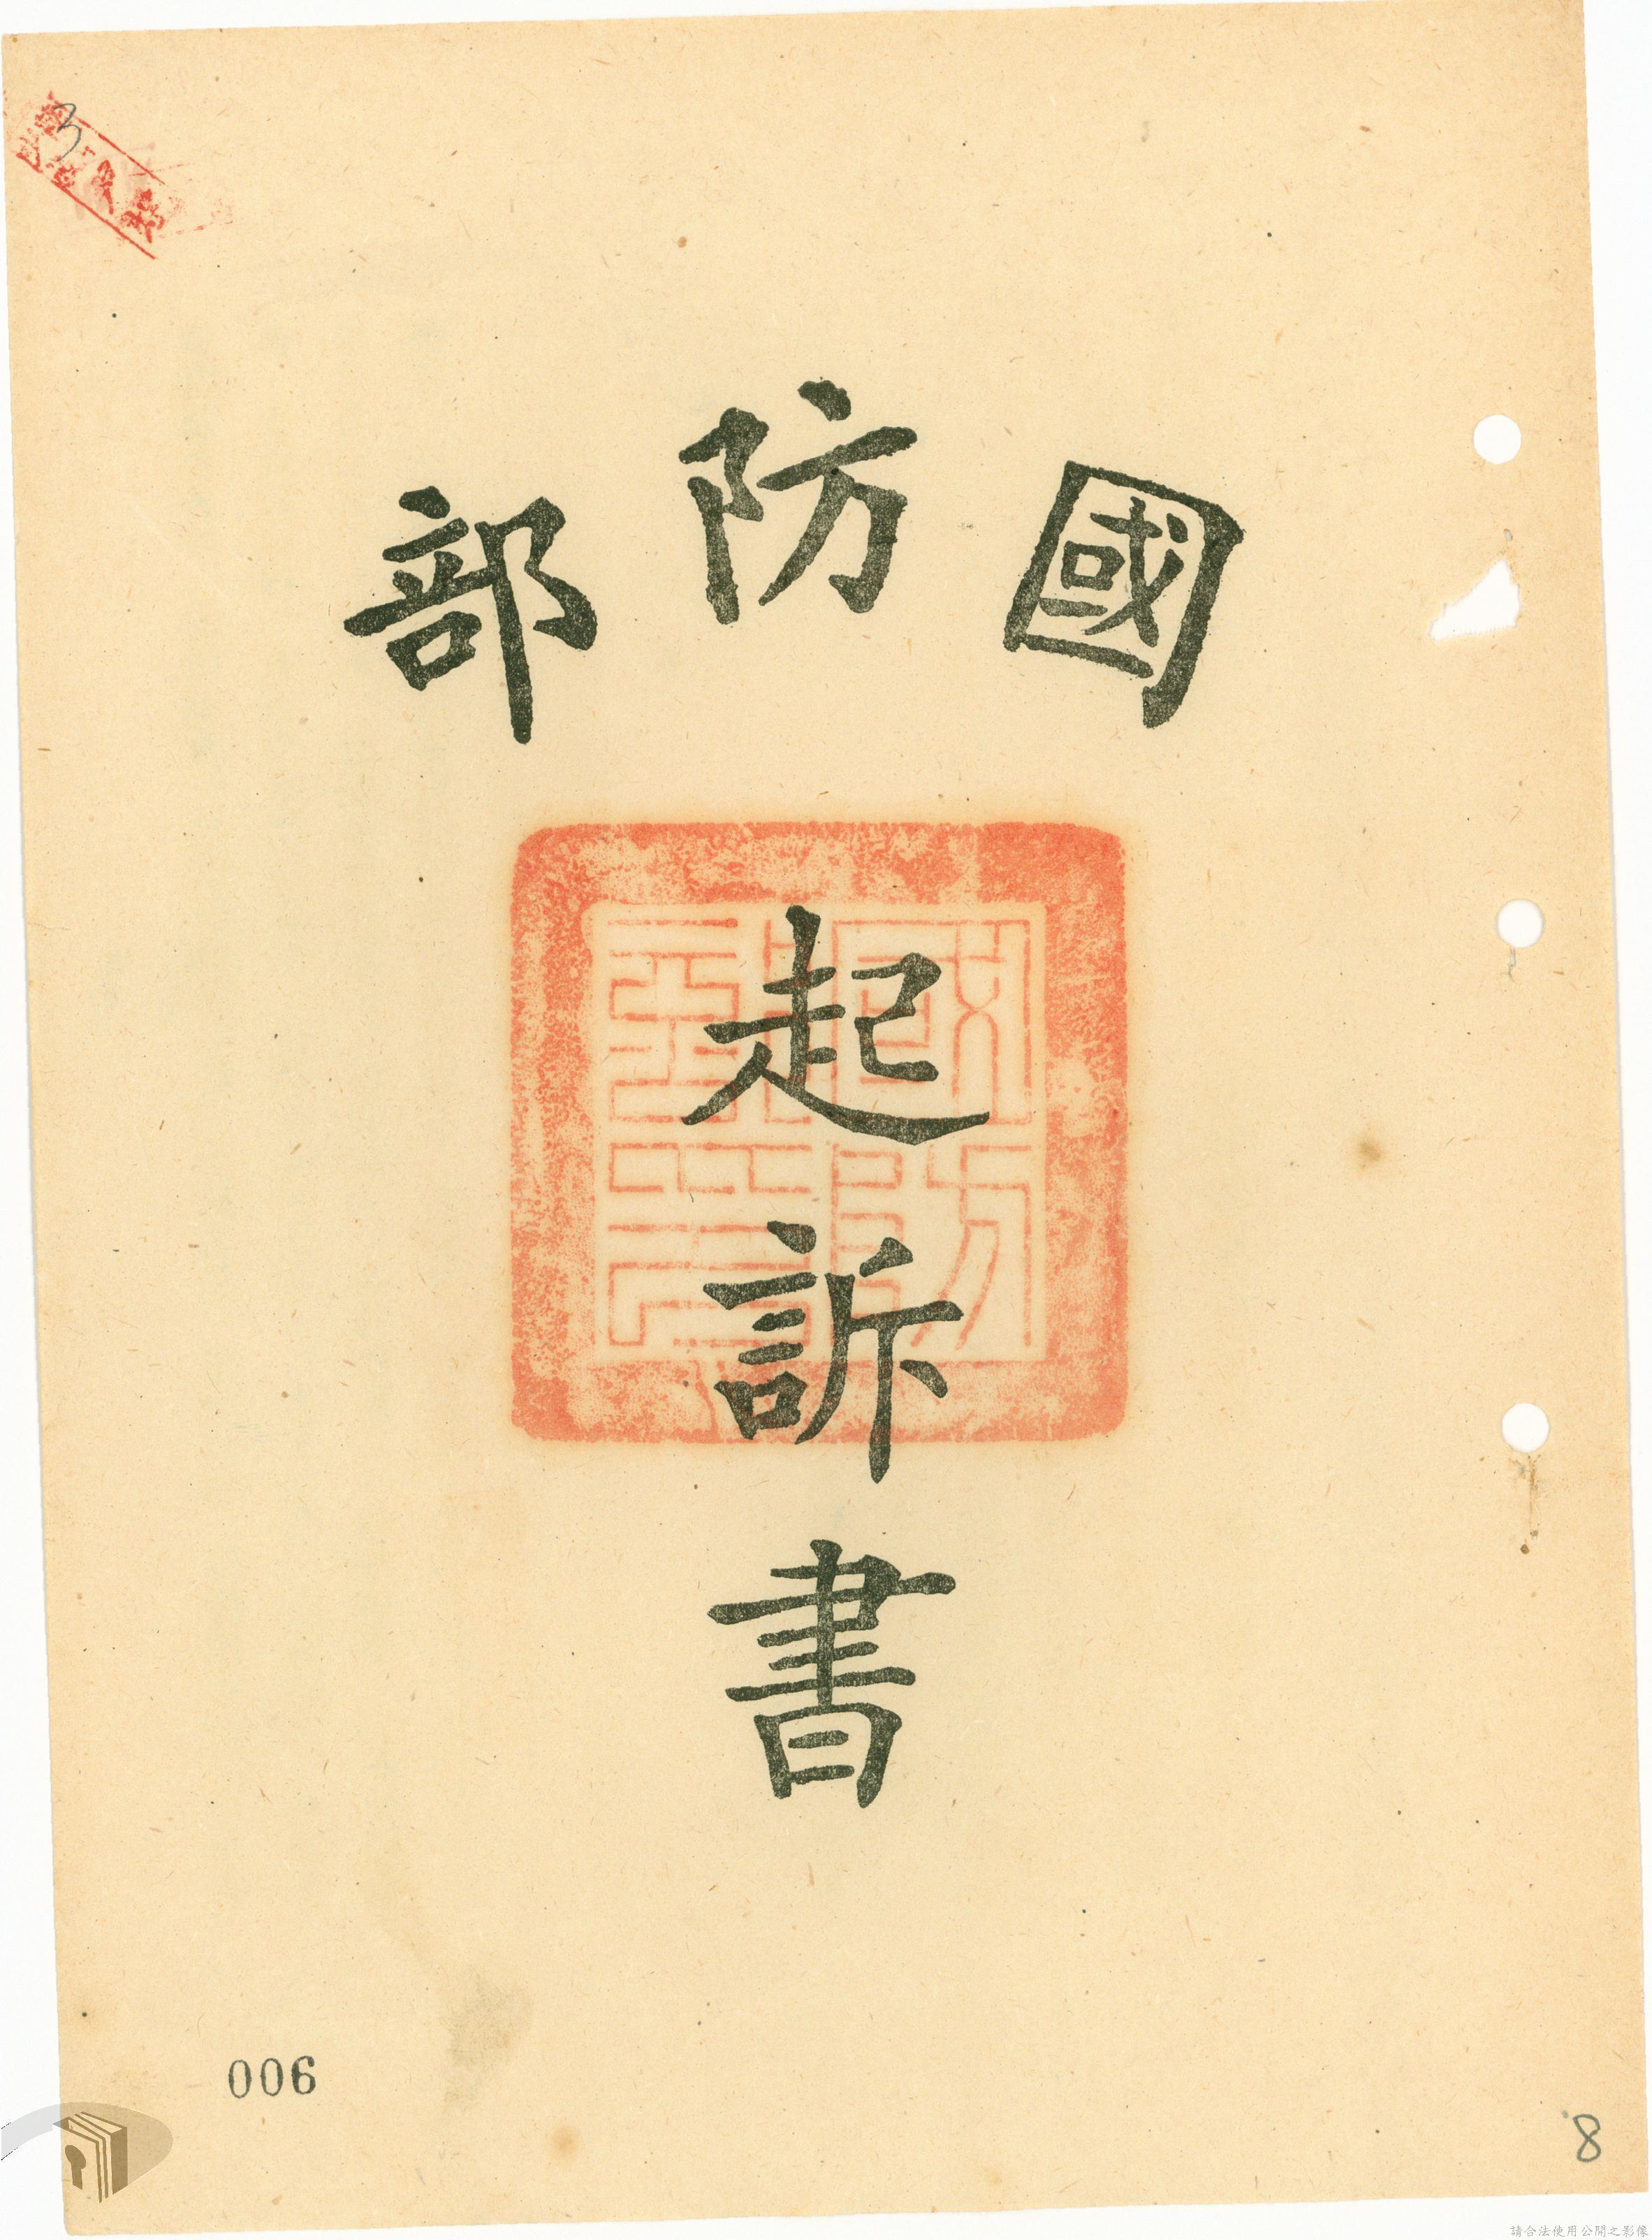 國防部
起訴書
3
006
8
請合法使用公開之影像